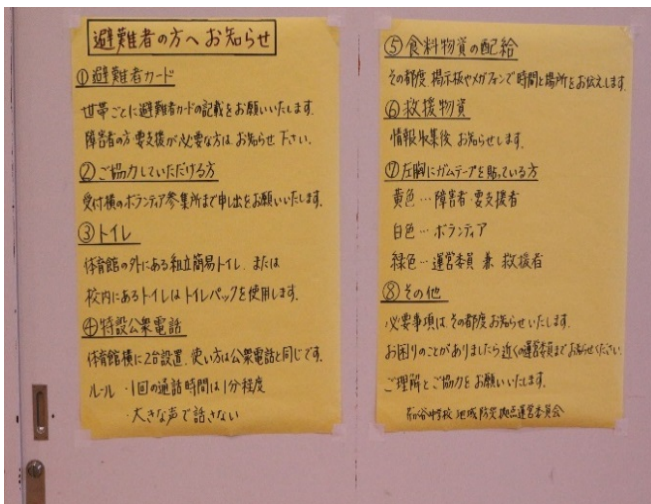 避難者の方へお知らせ
①避難者カード
世帯ごとに避難者カードの記載をお願いいたします.
障害者の方・要支援が必要な方は お知らせ 下さい.
②ご協力していただける方
受付横のボランティア参集所まで申し出をお願いいたします.
③トイレ
体育館の外にある組立簡易トイレ. または
校内にあるトイレはトイレパックを使用します.
④特設公衆電話
体育館横に2台設置. 使い方は公衆電話と同じです.
ルール ・1回の通話時間は1分程度
・大きな声で話さない
⑤食料物資の配給
その都度 掲示板やメガフォンで時間と場所をお伝えします.
⑥救援物資
情報収集後 お知らせします.
⑦左胸にガムテープを貼っている方
黄色…障害者・要支援者
白色…ボランティア
緑色…運営委員 兼 救援者
⑧その他
必要事項は その都度 お知らせいたします.
お困りのことがありましたら近くの運営委員までお知らせください.
ご理解とご協力を お願いいたします.
中学校 地域防災拠点運営委員会